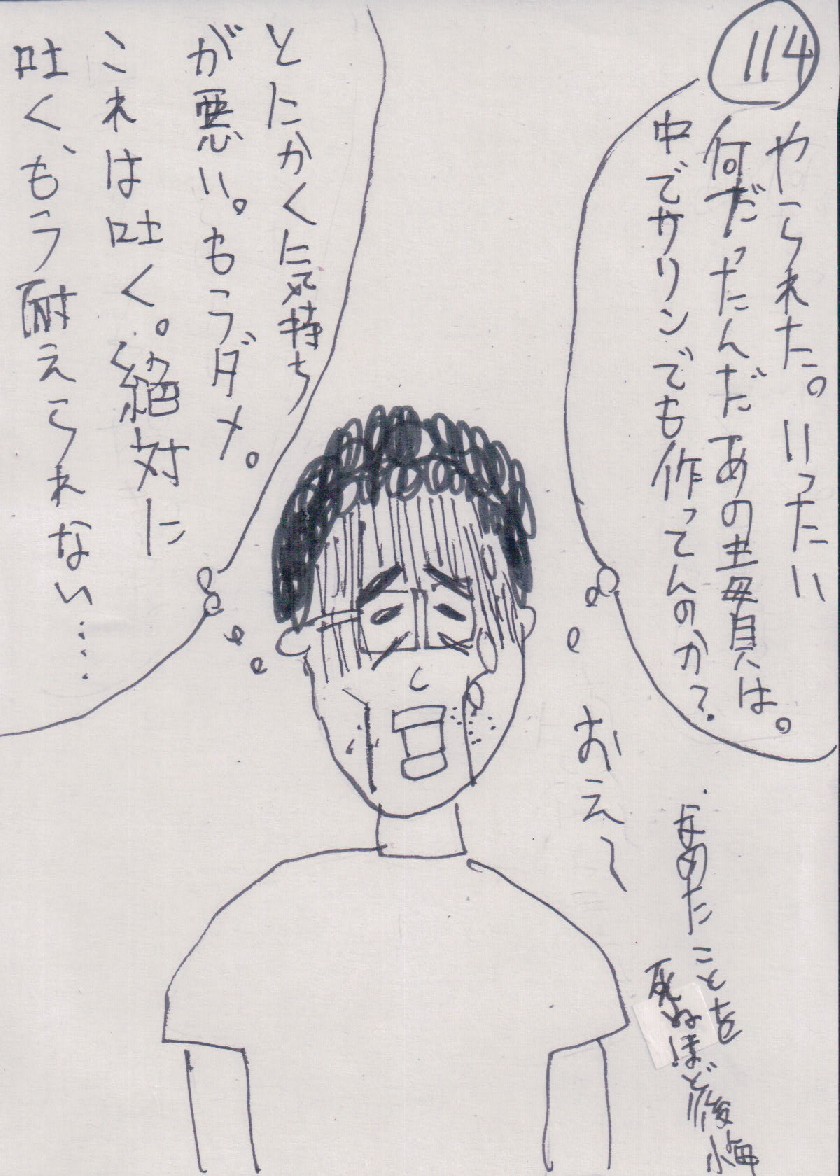 114
やられた。いったい
何だったんだあの毒貝は。
中でサリンでも作ってんのか?
とにかく気持ち
が悪い。もうダメ。
これは吐く。絶対に
吐く、もう耐えられない……
おえ〜
なめたことを
死ぬほど後悔